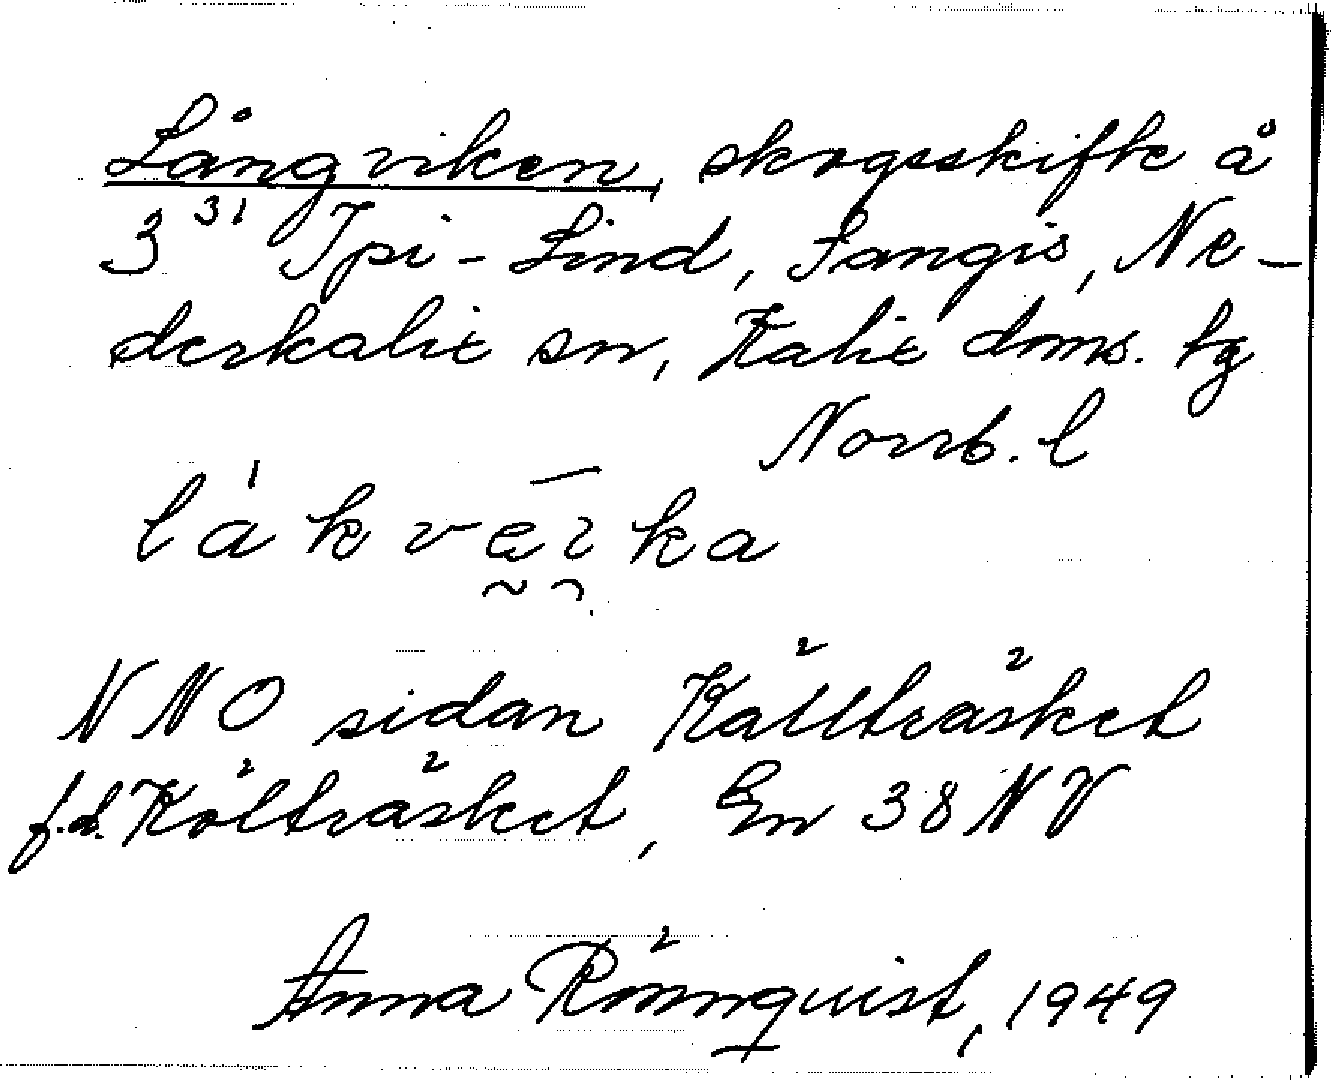 Långviken, skogsskifte å
3³¹ Ipi-Lind, Sangis, Ne-
derkalix sn, Kalix doms. tg
Norrb. l
NNO sidan Källträsket
f.d. Költräsket, En 38 NV
Anna Rönnquist, 1949